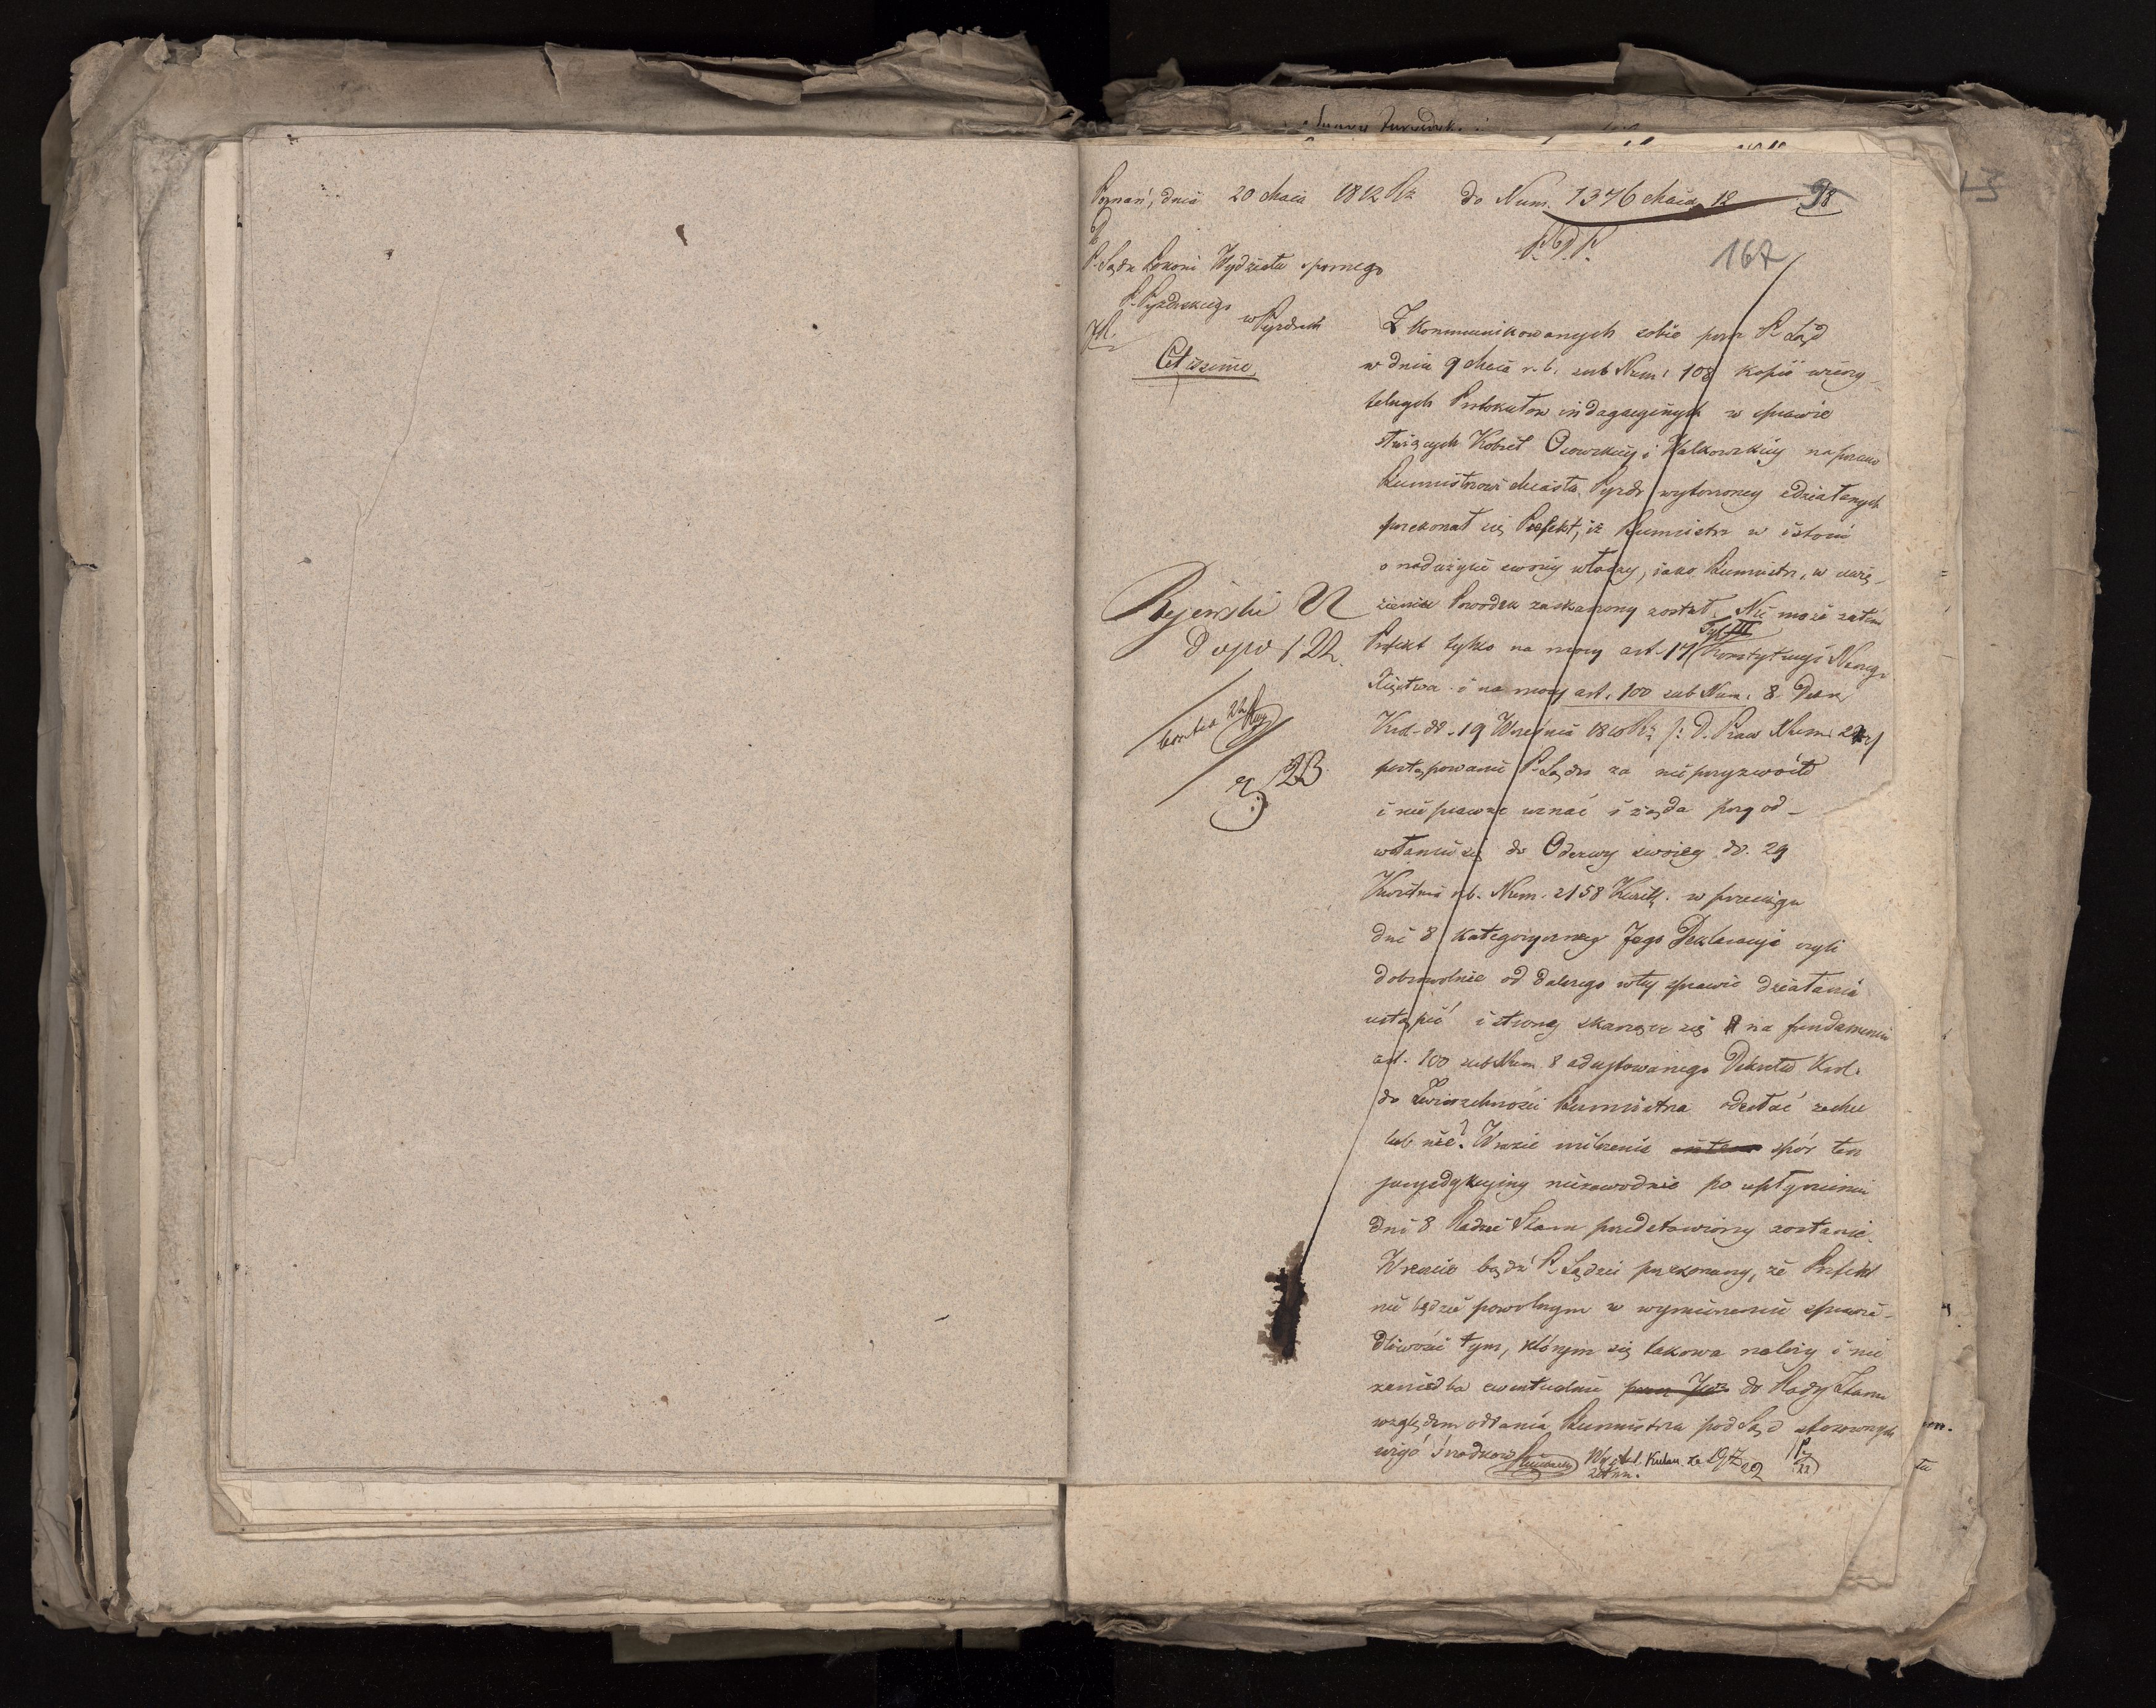 Poznań, dnia 20 Maia 1812 Rk do Num. 1376 Maia 12 98
P.D.P. 167
Do
P. Sądu Pokoiu Wydziału spornego
P. Pyzdrskiego
w Pyzdrach
Cito
Z kommunikowanych sobie przez P. Sąd
w dniu 9 Maia r. b. sub Num. 108 kopii wierzy-
telnych Protokułow indagacyinych w sprawie
służących Kobiet Osowskiey i Walkowskiey naprzeciw
Burmistrzowi Miasta Pyzdr wytoczoney zdziałanych
przekonał się Prefekt, iż Burmistrz w istocie
o nadużycie swoiey władzy, iako Burmistrz, w uwię-
zieniu Powodek zaskarżony został. Nie może zatem
Prefekt tylko na mocy art. 17 Tyt III Konstytucyi Naszego
Xięstwa i na mocy art. 100 sub Num. 8 Dekr.
Krol. dd. 19 Września 1810 Rk /: D. Praw Num.
postępowanie P. Sądu za nieprzyzwoite
i nieprawne uznać i żąda przy od-
wołaniu się do Odezwy swoiey dd. 29
Kwietnia r.b. Num. 2158 Kwiet. w przeciągu
dni 8 kategoryczney Jego Deklaracyi czyli
dobrowolnie od dalszego w tey sprawie działania
ustąpić i strony skarżące się na fundamencie
art. 100 sub Num 8 Dekretu Krol.
do Zwierzchności Burmistrza odesłać zechce
lub nie? W razie milczenia spór ten
jurysdykcyiny niezawodnie po upłynieniu
dni 8 Radzie Stanu przedstawiony zostanie.
Wreszcie bądź P. Sądzie przekonany, że Prefekt
nie będzie powolnym w wymierzeniu sprawie-
dliwości tym, którym się takowa należy i nie
zaniedba ewentualnie przez Jwo do Rady Stanu
względem oddania Burmistrza pod Sąd stosownych
użyć środkow
Rejewski 22
D 22.
23